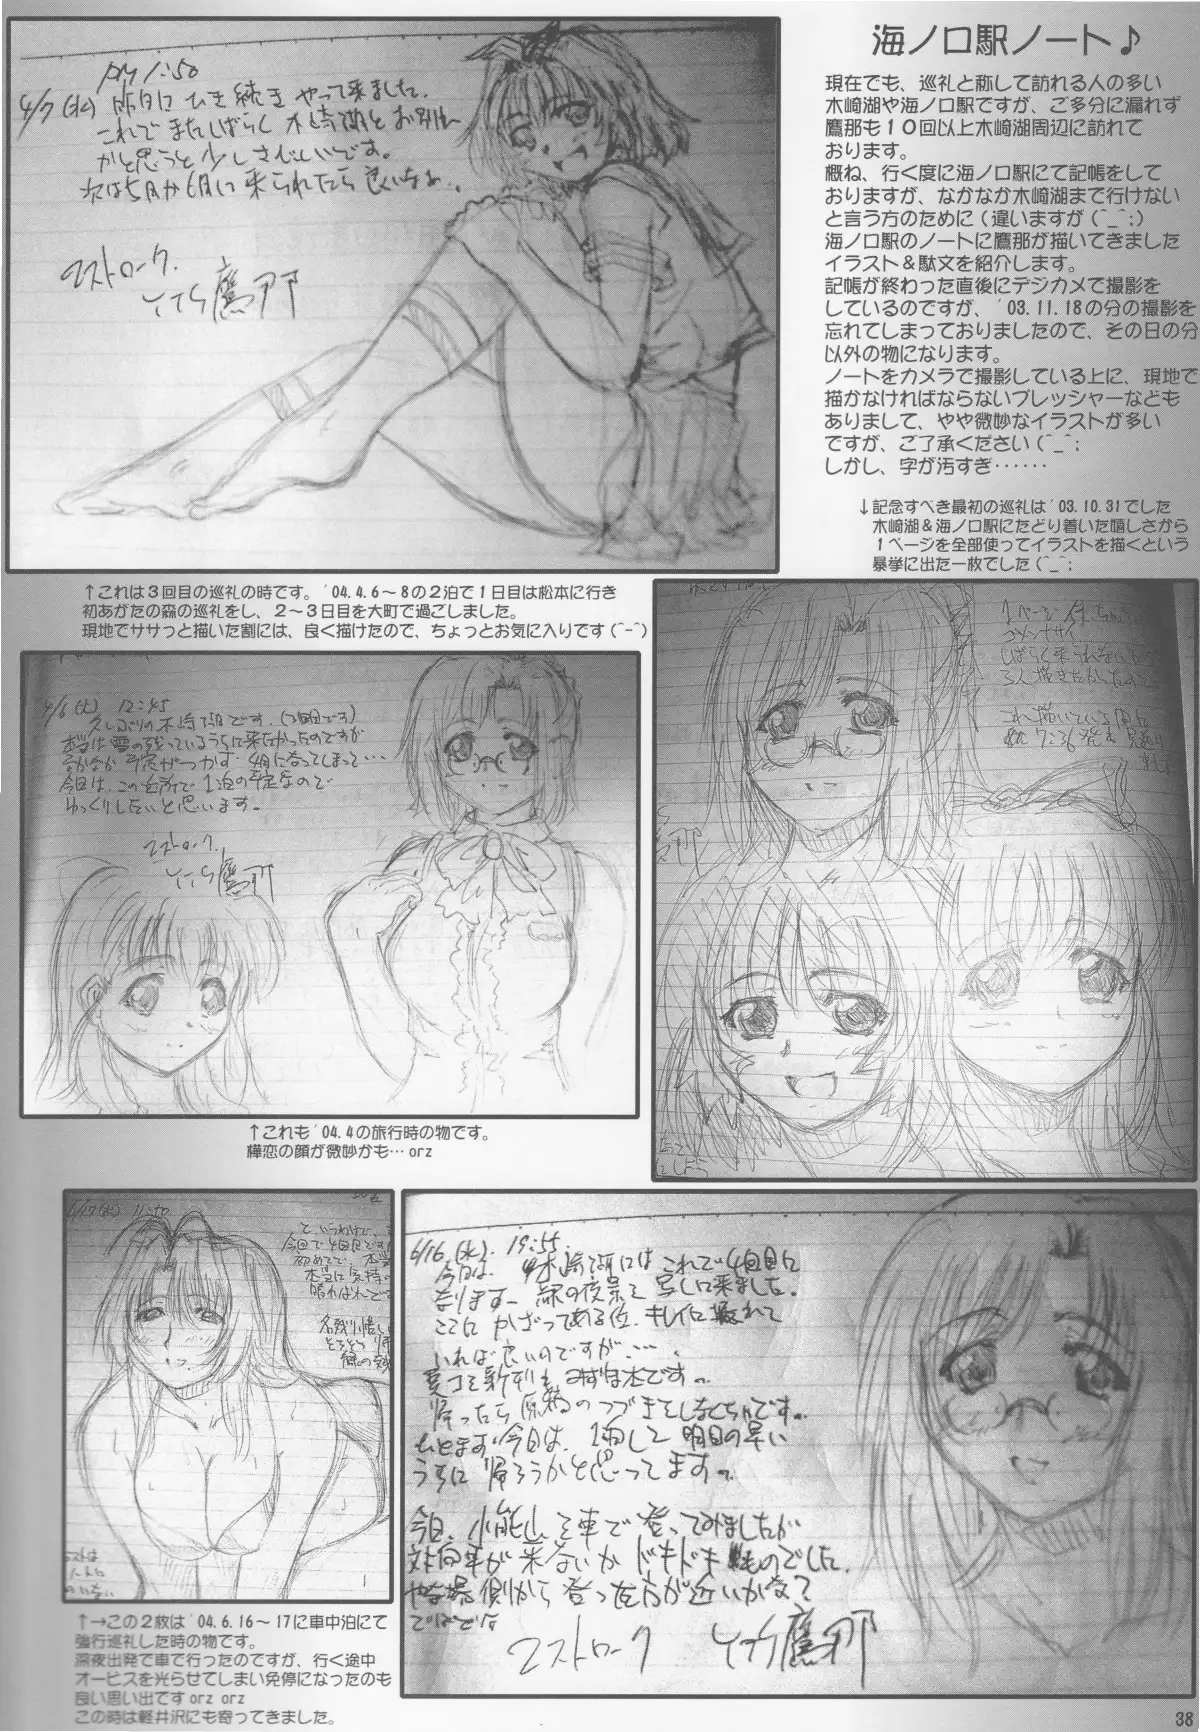 海ノ口駅ノート♪
現在でも、巡礼と称して訪れる人の多い
木崎湖や海ノ口駅ですが、ご多分に漏れず
鷹那も10回以上木崎湖周辺に訪れて
おります。
概ね、行く度に海ノ口駅にて記帳をして
おりますが、なかなか木崎湖まで行けない
と言う方のために(違いますが(^_^;)
海ノ口駅のノートに鷹那が描いてきました
イラスト＆駄文を紹介します。
記帳が終わった直後にデジカメで撮影を
しているのですが、'03.11.18の分の撮影を
忘れてしまっておりましたので、その日の分
以外の物になります。
ノートをカメラで撮影している上に、現地で
描かなければならないプレッシャーなども
ありまして、やや微妙なイラストが多い
ですが、ご了承ください(^_^;
しかし、字が汚すぎ……
↓記念すべき最初の巡礼は'03.10.31でした
木崎湖＆海ノ口駅にたどり着いた嬉しさから
1ページを全部使ってイラストを描くという
暴挙に出た一枚でした(^_^;
PM 1:50
4/7(水) 昨日にひき続きやって来ました。
これでまたしばらく木崎湖とお別れ
かと思うと少しさびしいです。
次は5月か6月に来られたら良いなぁ..
マストローク.
鷹那
↑これは3回目の巡礼の時です。'04.4.6～8の2泊で1日目は松本に行き
初あがたの森の巡礼をし、2～3日目を大町で過ごしました。
現地でササっと描いた割には、良く描けたので、ちょっとお気に入りです(^-^)
4/6(火) 12:45
久しぶりの木崎湖です.(3回目です)
本当は雪の残っているうちに来たかったのですが
なかなか予定がつかず 4月になってしまって…
今回は、この近所で1泊の予定なので
ゆっくりしたいと思います.
マストローク.
鷹那
↑これも'04.4の旅行時の物です。
樺恋の顔が微妙かも…orz
1ページ
ゴメンナサイ
しばらく来られない
3人描きたかった
これ描いている間に
7:36発を見送り
11:50
というわけで、
今回で4回目です
初めてで、
本当に気持
晴ればれ
名残り惜し
そろそろ
緑の
↑→この2枚は'04.6.16～17に車中泊にて
強行巡礼した時の物です。
深夜出発で車で行ったのですが、行く途中
オービスを光らせてしまい免停になったのも
良い思い出ですorz orz
この時は軽井沢にも寄ってきました。
6/16(水). 19:55.
今日は、木崎湖にはこれで4回目に
なります. 緑の夜景を写しに来ました.
ここにかざってある位、キレイに撮れて
いれば良いのですが….
夏コミ新刊もみずほ本です.
帰ったら原稿のつづきをしなくちゃです.
ひとまず今日は、1泊して明日の早い
うちに帰ろうかと思ってます.
今日、小熊山を車で登ってみましたが
対向車が来ないかドキドキものでした.
側から登った方が近いかなって
マストローク
鷹那
38